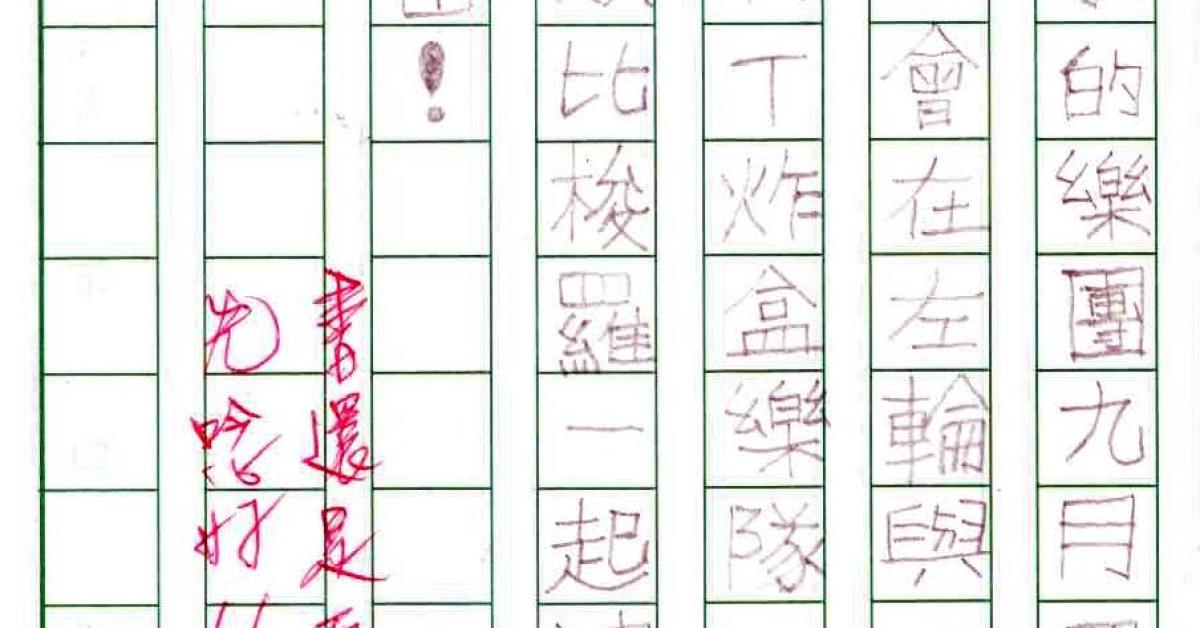 的樂團九月
會在左輪與
丁炸盒樂隊
比梭羅一起
！
書還是
先唸好